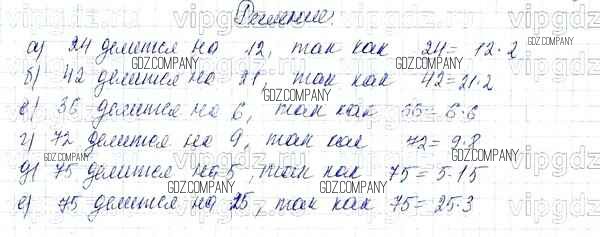 Решение:
а) 24 делится на 12, так как 24 = 12·2
б) 42 делится на 21, так как 42 = 21·2
в) 36 делится на 6, так как 36 = 6·6
г) 72 делится на 9, так как 72 = 9·8
д) 75 делится на 5, так как 75 = 5·15
е) 75 делится на 25, так как 75 = 25·3
GDZ.COMPANY
GDZ.COMPANY
GDZ.COMPANY
GDZ.COMPANY
GDZ.COMPANY
GDZ.COMPANY
vipgdz.ru